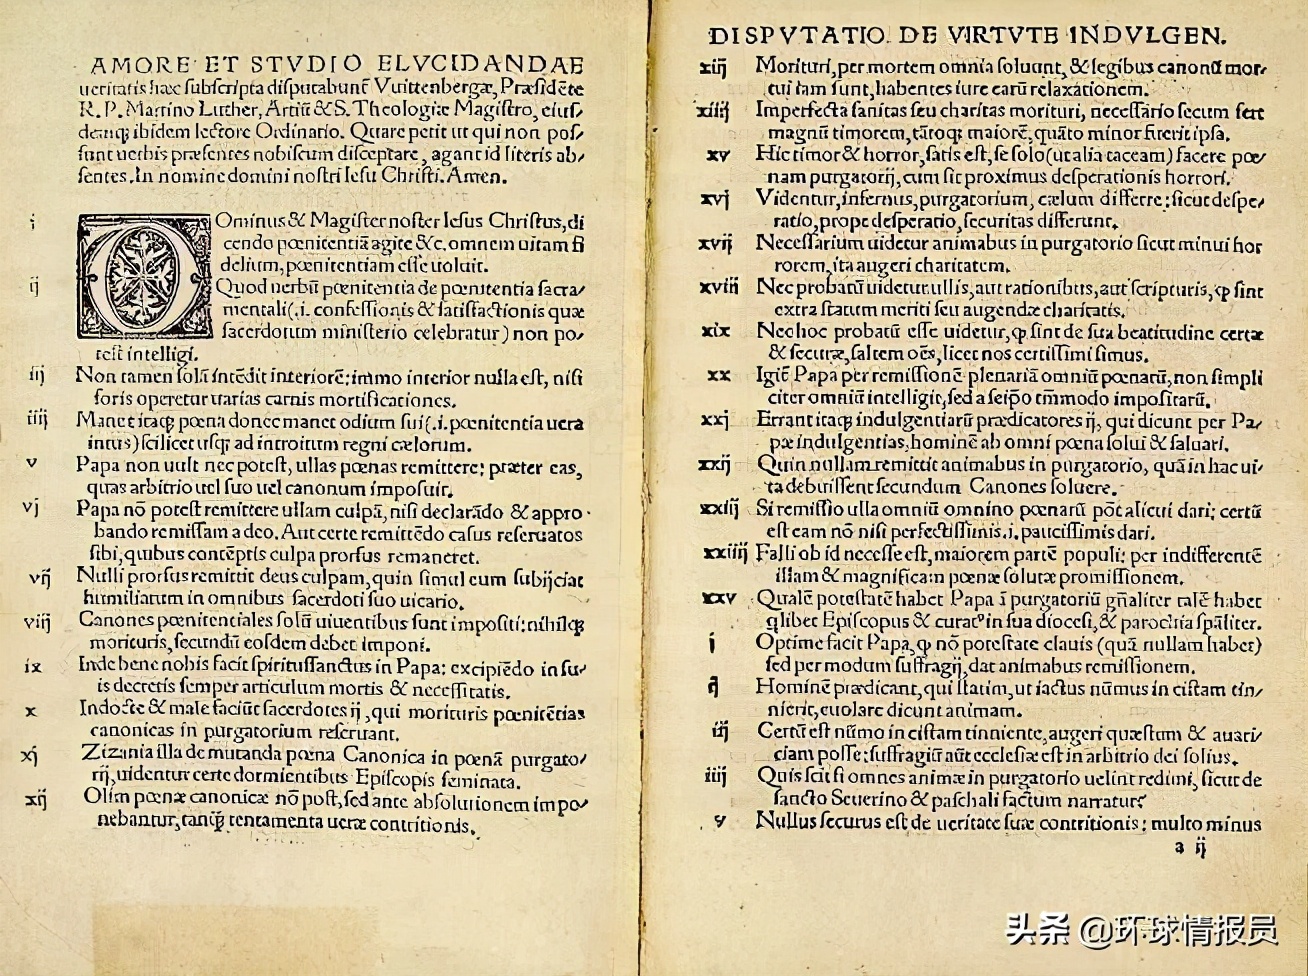 AMORE ET STVDIO ELVCIDANDAE
ueritatis hæc subscripta disputabunt̃ Vuittenbergæ, Præsidẽte
R. P. Martino Luther, Artiũ & S. Theologiæ Magistro, eius/
demq; ibidem lectore Ordinario. Quare petit ut qui non pos/
sunt uerbis præsentes nobiscum disceptare, agant id literis ab/
sentes. In nomine domini nostri Iesu Christi. Amen.
i DOminus & Magister noster Iesus Christus, di
cendo pœnitentiã agite &c. omnem uitam fi
delium, pœnitentiam esse uoluit.
ij Quod uerbũ pœnitentia de pœnitentia sacra/
mentali (.i. confessionis & satisfactionis quæ
sacerdotum ministerio celebratur) non po/
test intelligi.
iij Non tamen solã intẽdit interiorẽ: immo interior nulla est, nisi
foris operetur uarias carnis mortificationes.
iiij Manet itaq; pœna donec manet odium sui (.i. pœnitentia uera
intus) scilicet usq; ad introitum regni cælorum.
v Papa non uult nec potest, ullas pœnas remittere: præter eas,
quas arbitrio uel suo uel canonum imposuit.
vj Papa nõ potest remittere ullam culpã, nisi declarãdo & appro-
bando remissam a deo. Aut certe remittẽdo casus reseruatos
sibi, quibus contẽptis culpa prorsus remaneret.
vij Nulli prorsus remittit deus culpam, quin simul eum subijciat
humiliatum in omnibus sacerdoti suo uicario.
viij Canones pœnitentiales solũ uiuentibus sunt impositi: nihilq;
morituris, secundũ eosdem debet imponi.
ix Inde bene nobis facit spiritussanctus in Papa: excipiẽdo in su/
is decretis semper articulum mortis & necessitatis.
x Indocte & male faciũt sacerdotes ij, qui morituris pœnitẽtias
canonicas in purgatorium reseruant.
xj Zizania illa de mutanda pœna Canonica in pœnã purgato/
rij, uidentur certe dormientibus Episcopis seminata.
xij Olim pœnæ canonicæ nõ post, sed ante absolutionem impo/
nebantur, tanq̃ tentamenta ueræ contritionis.
DISPVTATIO. DE VIRTVTE INDVLGEN.
xiij Morituri, per mortem omnia soluunt, & legibus canonũ mor/
tui iam sunt, habentes iure earũ relaxationem.
xiiij Imperfecta sanitas seu charitas morituri, necessario secum fert
magnũ timorem, tãtoq; maiorẽ, quãto minor fuerit ipsa.
xv Hic timor & horror, satis est, se solo (ut alia taceam) facere pœ/
nam purgatorij, cum sit proximus desperationis horrori.
xvj Videntur, infernus, purgatorium, cælum differre: sicut despe/
ratio, prope desperatio, securitas differunt.
xvij Necessarium uidetur animabus in purgatorio sicut minui hor
rorem, ita augeri charitatem.
xviij Nec probatũ uidetur ullis, aut rationibus, aut scripturis, q̃ sint
extra statum meriti seu augendæ charitatis.
xix Nec hoc probatũ esse uidetur, q̃ sint de sua beatitudine certæ
& securæ, saltem oẽs, licet nos certissimi simus.
xx Igit̃ Papa per remissionẽ plenariã omniũ pœnarũ, non simpli
citer omniũ intelligit, sed a seipo tm̃modo impositarũ.
xxj Errant itaq; indulgentiarũ prædicatores ij, qui dicunt per Pa/
pæ indulgentias, hominẽ ab omni pœna solui & saluari.
xxij Quin nullam remittit animabus in purgatorio, quã in hac ui/
ta debuissent secundum Canones soluere.
xxiij Si remissio ulla omniũ omnino pœnarũ põt alicui dari; certũ
est eam nõ nisi perfectissimis .i. paucissimis dari.
xxiiij Falli ob id necesse est, maiorem partẽ populi: per indifferentẽ
illam & magnificam pœnæ solutæ promissionem.
xxv Qualẽ potestatẽ habet Papa ĩ purgatoriũ gñaliter talẽ habet
q̃libet Episcopus & curatꝰ in sua diocesi, & parochia sp̃aliter.
j Optime facit Papa, q̃ nõ potestate clauis (quã nullam habet)
sed per modum suffragij, dat animabus remissionem.
ij Hominẽ prædicant, qui statim, ut iactus nũmus in cistam tin/
nierit, euolare dicunt animam.
iij Certũ est nũmo in cistam tinniente, augeri quæstum & auari/
ciam posse: suffragiũ aũt ecclesiæ est in arbitrio dei solius.
iiij Quis scit si omnes animæ in purgatorio uelint redimi, sicut de
sancto Seuerino & paschali factum narratur?
v Nullus securus est de ueritate suæ contritionis: multo minus
a ij
头条 @环球情报员